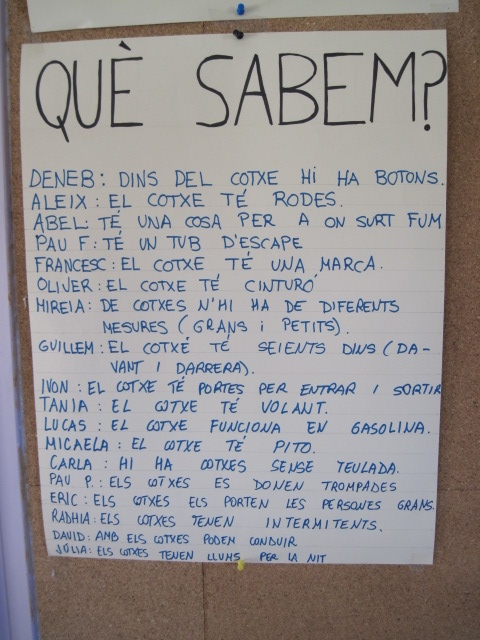 QUÈ SABEM?
DENEB: DINS DEL COTXE HI HA BOTONS.
ALEIX: EL COTXE TÉ RODES.
ABEL: TÉ UNA COSA PER A ON SURT FUM
PAU F: TÉ UN TUB D'ESCAPE
FRANCESC: EL COTXE TÉ UNA MARCA.
OLIVER: EL COTXE TÉ CINTURÓ
MIREIA: DE COTXES N'HI HA DE DIFERENTS
MESURES (GRANS i PETITS).
GUILLEM: EL COTXÉ TÉ SEIENTS DINS (DA-
VANT I DARRERA).
IVON: EL COTXE TÉ PORTES PER ENTRAR I SORTIR
TANIA: EL COTXE TÉ VOLANT.
LUCAS: EL COTXE FUNCIONA EN GASOLINA.
MICAELA: EL COTXE TÉ PITO.
CARLA: HI HA COTXES SENSE TEULADA.
PAU P.: ELS COTXES ES DONEN TROMPADES
ERIC: ELS COTXES ELS PORTEN LES PERSONES GRANS.
RADHIA: ELS COTXES TENEN INTERMITENTS.
DAVID: AMB ELS COTXES PODEN CONDUIR
JÚLIA: ELS COTXES TENEN LLUMS PER LA NIT